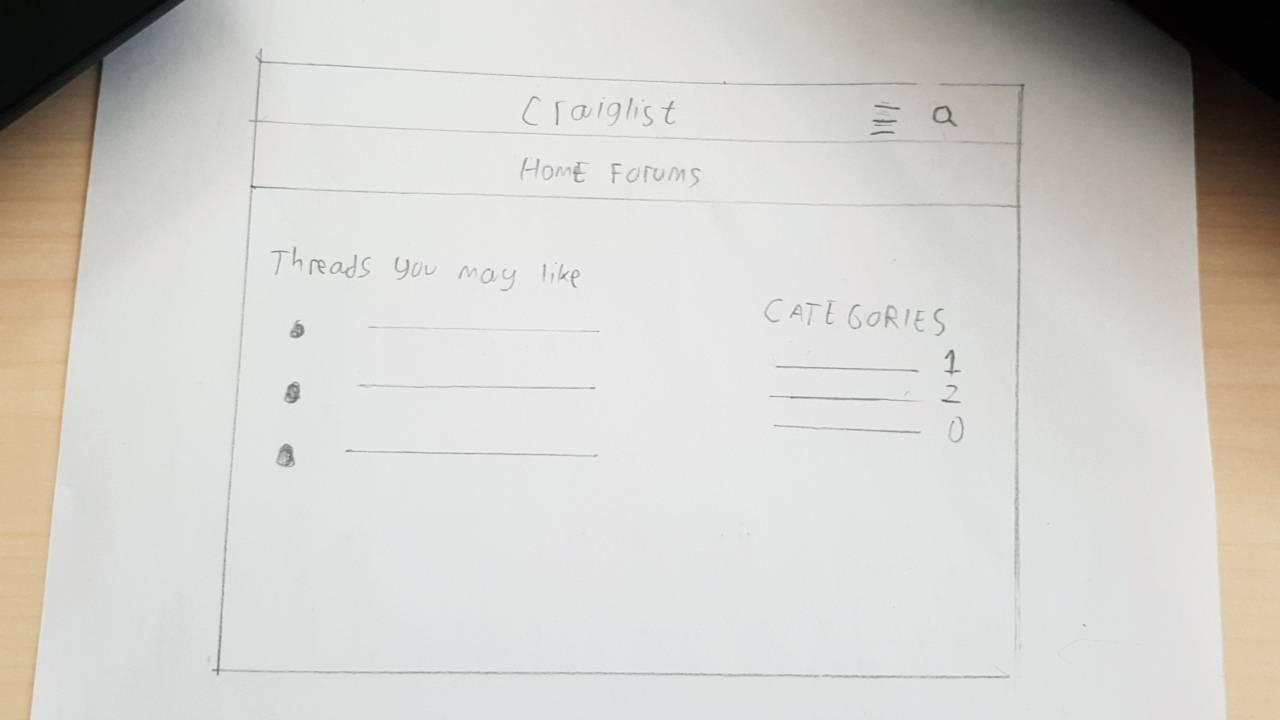 Craiglist
Home Forums
Threads you may like
CATEGORIES
1
2
0